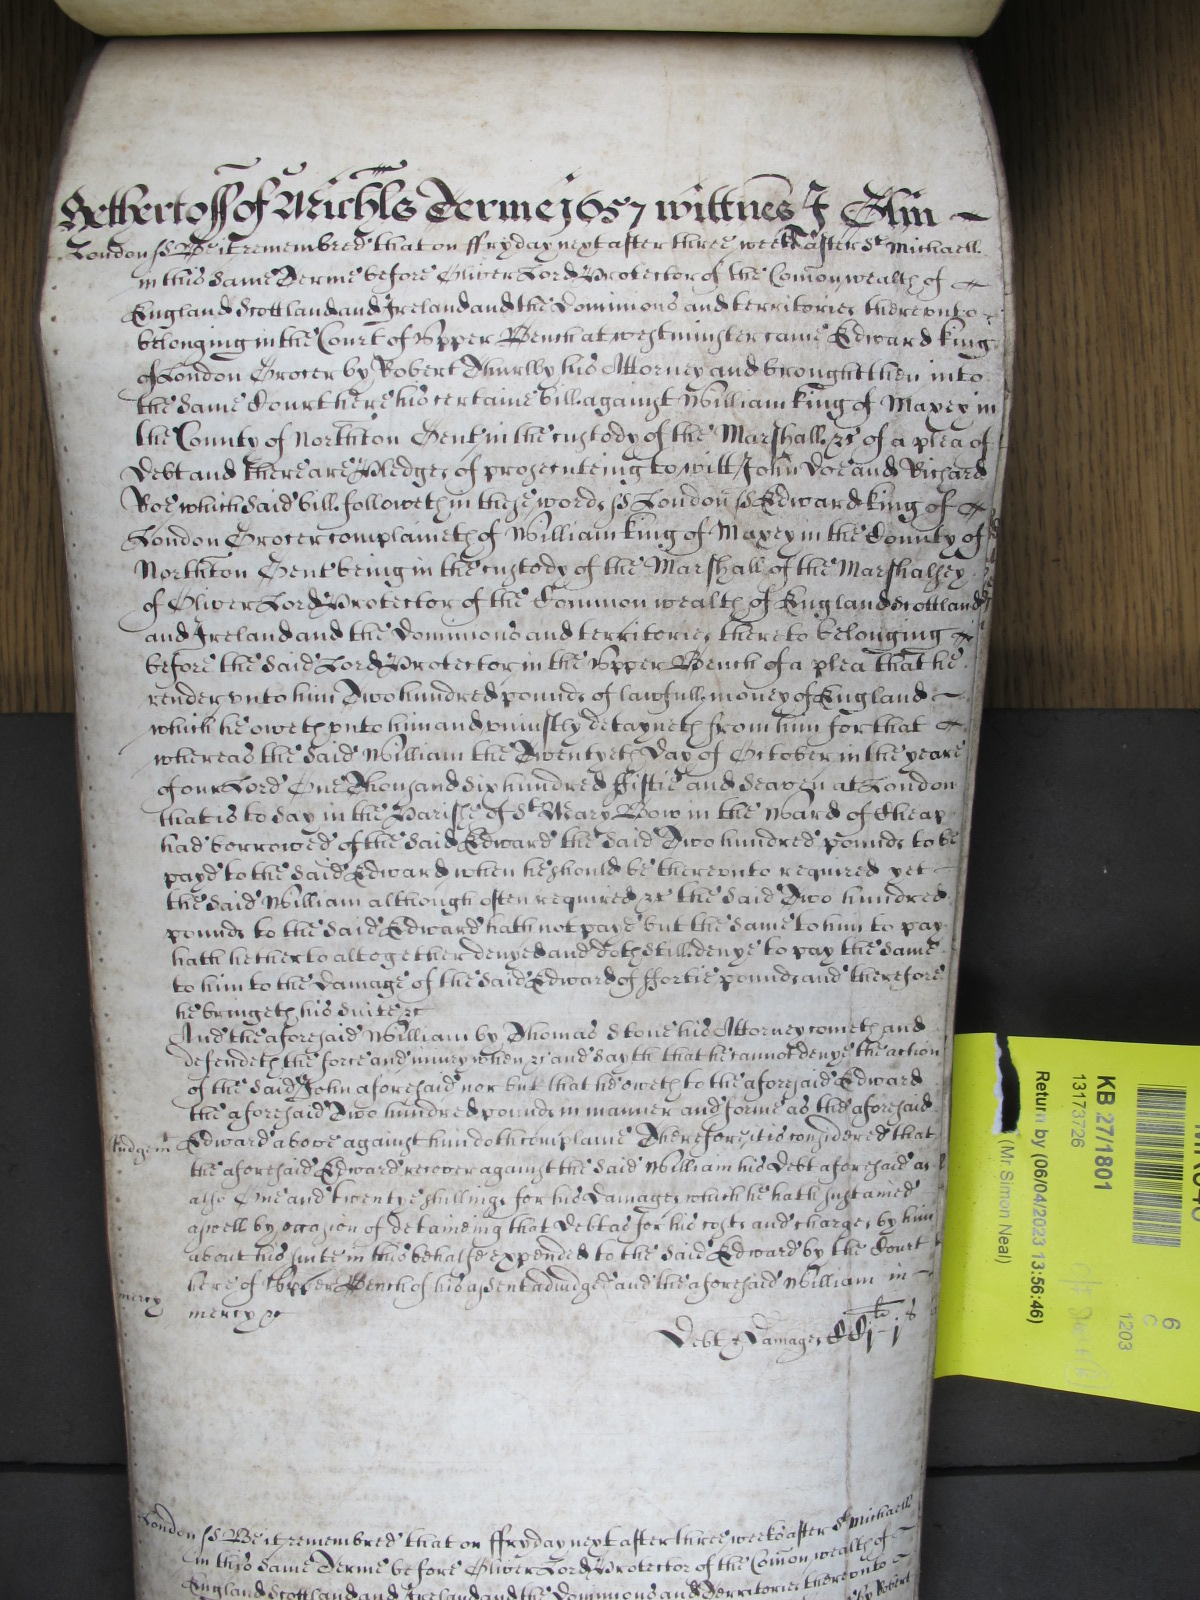 Hetherto ss of Michls Terme 1657 wittnes J Glin
London ss Be it remembred that on ffryday next after three weekes after St Michaell
in this same Terme before Oliver Lord Protector of the Comonwealth of
England Scottland and Ireland and the Dominions and territories thereunto
belonging in the Court of Upper Bench at westminster came Edward King
of London Grocer by Robert Thurlby his Attorney and brought then into
the same Court here his certaine bill against William King of Maxey in
the County of Northton Gent in the custody of the Marshall &c of a plea of
Debt and there are Pledges of prosecuteing to witt John Doe and Richard
Roe which said bill followeth in these words ss London ss Edward King of
London Grocer complaineth of William King of Maxey in the County of
Northton Gent being in the custody of the Marshall of the Marshalsey
of Oliver Lord Protector of the Common wealth of England Scottland
and Ireland and the Dominions and territories thereto belonging
before the said Lord Protector in the Upper Bench of a plea that he
render vnto him Two hundred pounds of lawfull money of England
which he oweth vnto him and vniustly detayneth from him for that
whereas the said William the Twentyeth day of October in the yeare
of our Lord One Thousand six hundred ffiftie and seaven at London
that is to say in the Parishe of St Mary Bow in the Ward of Cheap
had borrowed of the said Edward the said Two hundred pounds to be
payd to the said Edward when he should be therevnto required yet
the said William although often required &c the said Two hundred
pounds to the said Edward hath not payd but the same to him to pay
hath hetherto altogether denyed and doth still denye to pay the same
to him to the damage of the said Edward of ffortie pounds and therefore
he bringeth his suite &c
And the aforesaid William by Thomas Stone his Attorney cometh and
defendeth the force and iniury when &c and sayth that he cannot denye the action
of the said John aforesaid nor but that he oweth to the aforesaid Edward
the aforesaid Two hundred pounds in manner and forme as the aforesaid
Judgem Edward above against him doth complaine Therefore it is considered that
the aforesaid Edward recover against the said William his Debt aforesaid as
alsoe One and twentye shillings for his damages which he hath sustained
aswell by occasion of detaineing that Debt as for his costs and charges by him
about his suite in this behalfe expended to the said Edward by the Court
here of Upper Bench of his assent adiudged and the aforesaid William in
mercy mercy &c
Debt & Damages CCj li j s
London ss Be it remembred that on ffryday next after three weekes after St Michaell
in this same Terme before Oliver Lord Protector of the Comon wealth of
England Scottland and Ireland and the Dominions and Territories therevnto
by Robert
KB 27/1801
13173726
Return by (06/04/2023 13:56:46)
(Mr Simon Neal)
6
C
1203